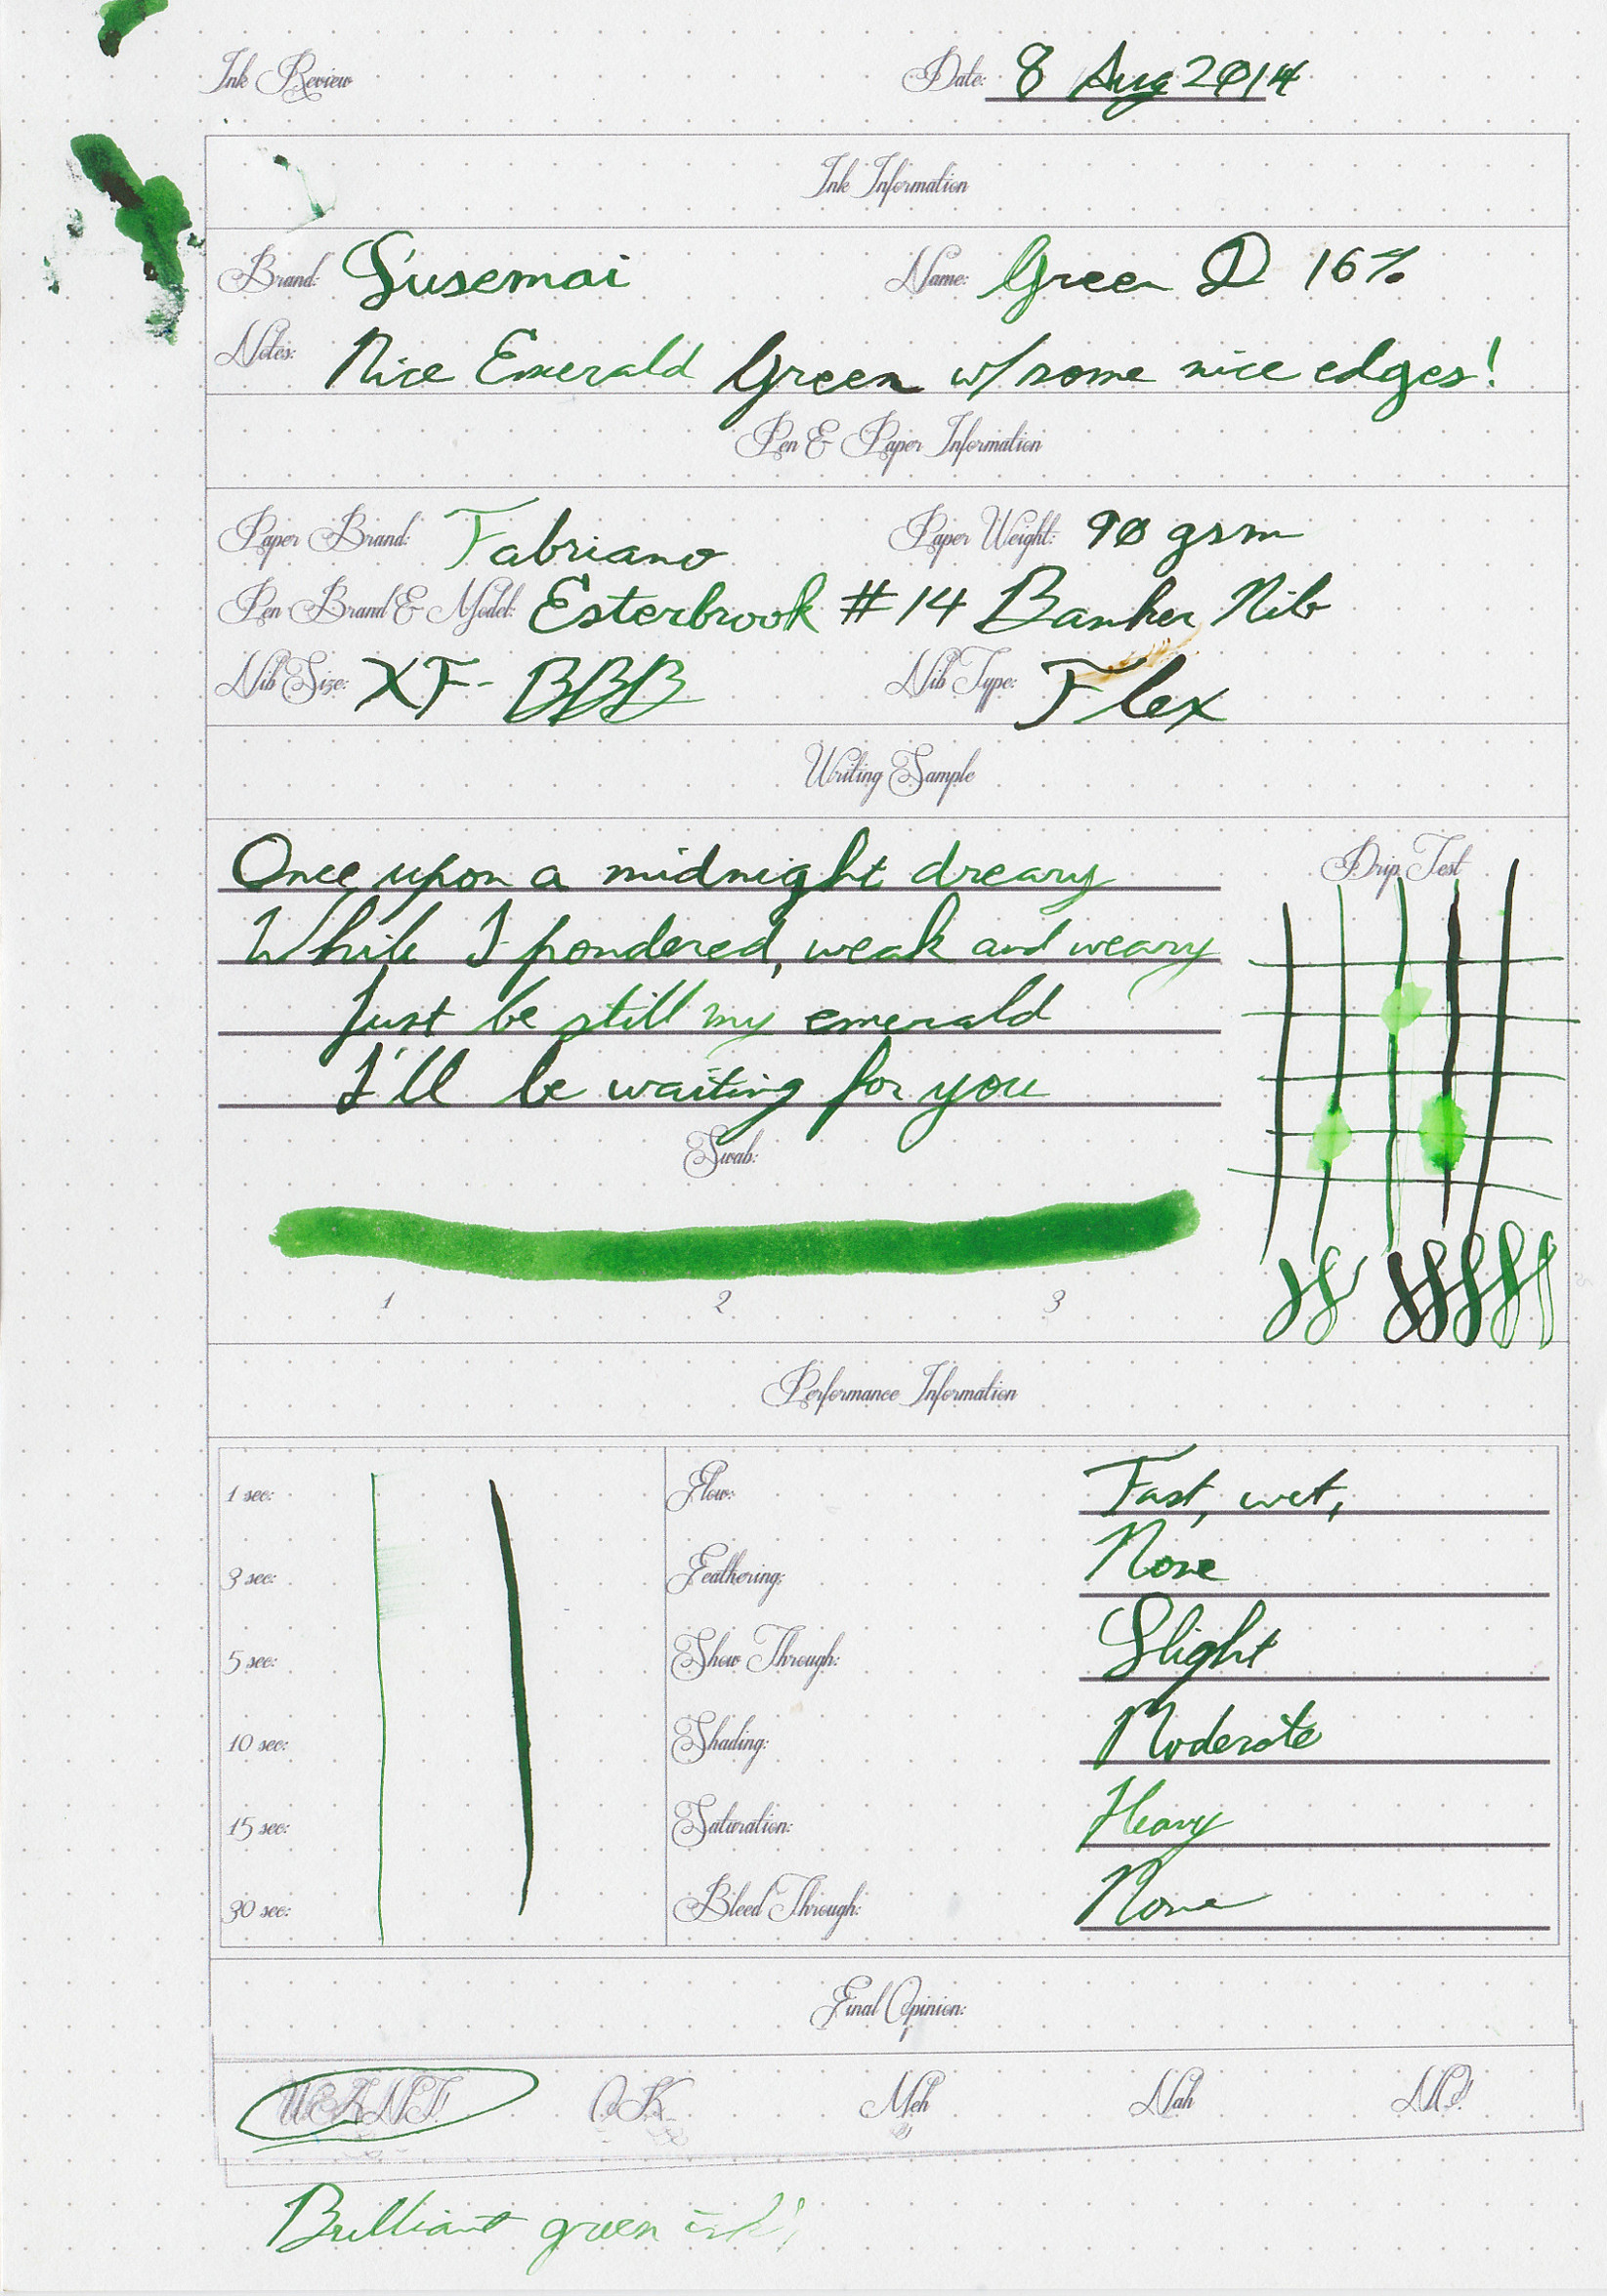 Ink Review Date: 8 Aug 2014
Ink Information
Brand: Susemai Name: Green D 16%
Notes: Nice Emerald Green w/ some nice edges!
Pen & Paper Information
Paper Brand: Fabriano Paper Weight: 90 gsm
Pen Brand & Model: Esterbrook #14 Banker Nib
Nib Size: XF - BBB Nib Type: Flex
Writing Sample
Once upon a midnight dreary
While I pondered, weak and weary
Just be still my emerald
I'll be waiting for you
Drip Test
Swab:
1 2 3
Performance Information
1 sec: Flow: Fast, wet,
3 sec: Feathering: None
5 sec: Show Through: Slight
10 sec: Shading: Moderate
15 sec: Saturation: Heavy
30 sec: Bleed Through: None
Final Opinion:
WANT! O.K. Meh Nah NO!
Brilliant green ink!